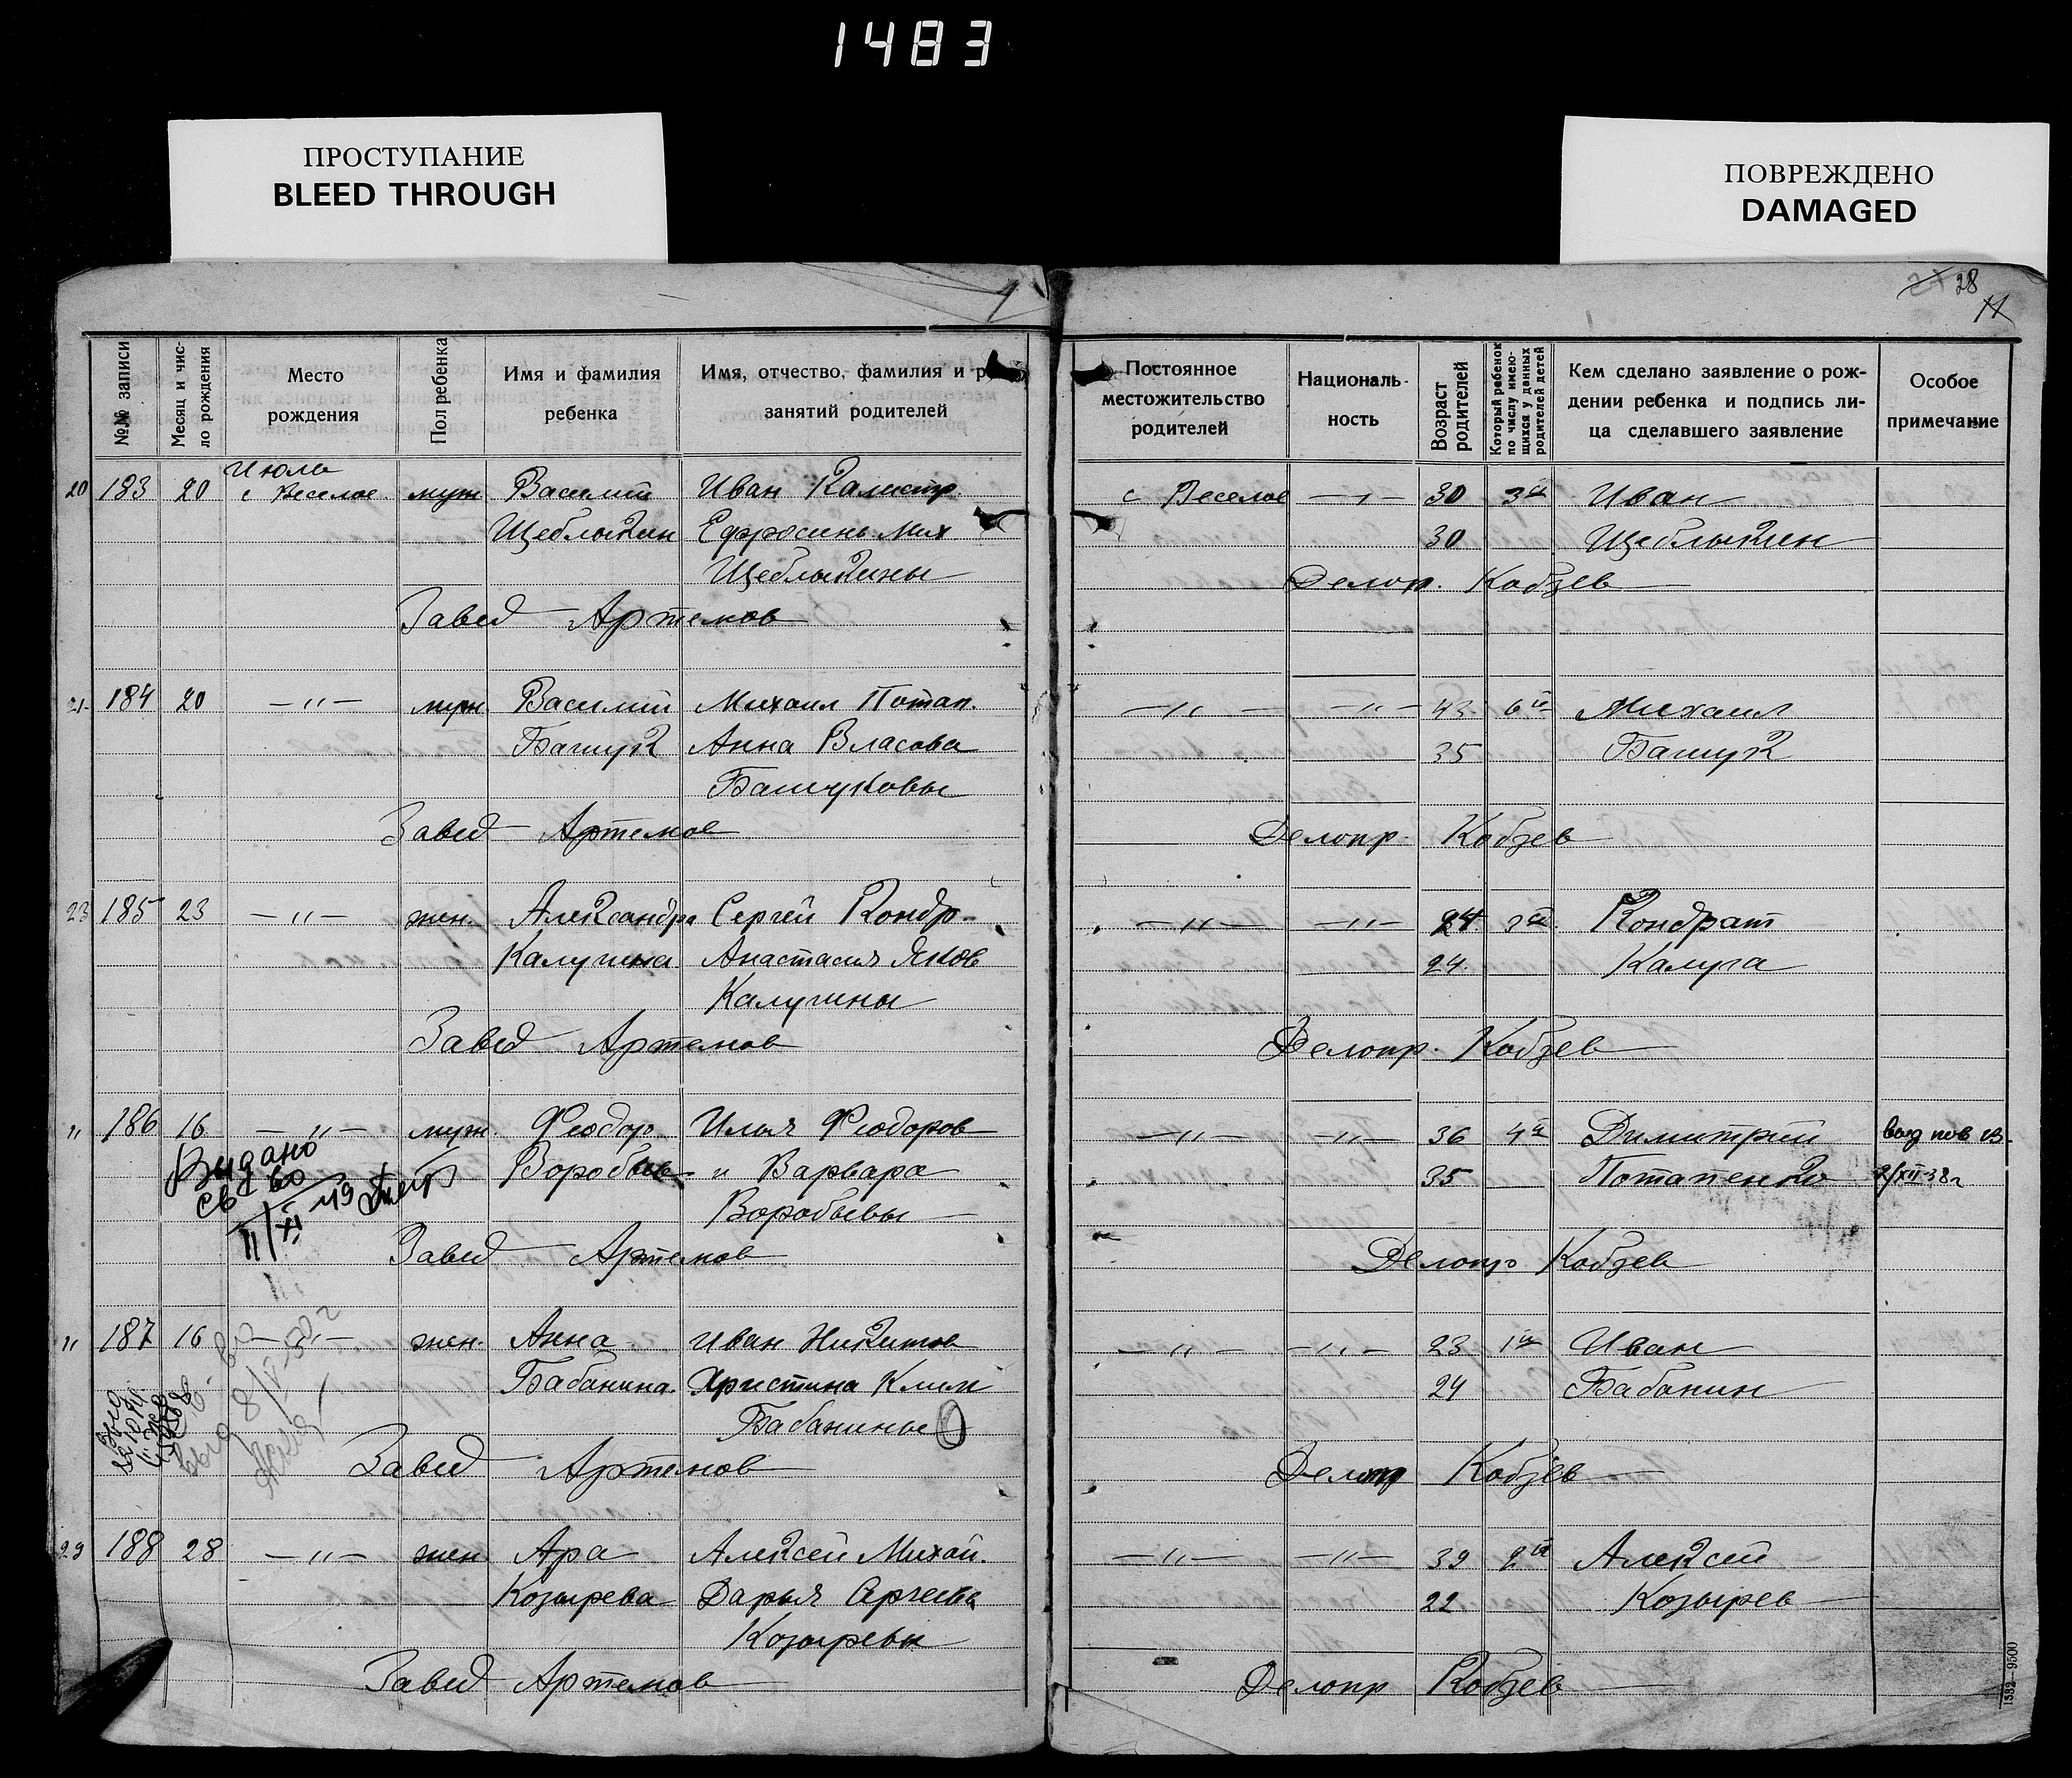 1483
ПРОСТУПАНИЕ
BLEED THROUGH
ПОВРЕЖДЕНО
DAMAGED
28
11
№№ записи
Месяц и чис-
ло рождения
Место
рождения
Пол ребенка
Имя и фамилия
ребенка
Имя, отчество, фамилия и р
занятий родителей
Постоянное
местожительство
родителей
Националь-
ность
Возраст
родителей
Который ребенок
по числу имею-
щихся у данных
родителей детей
Кем сделано заявление о рож-
дении ребенка и подпись ли-
ца сделавшего заявление
Особое
примечание
Июля
20 183 20 с Веселое муж Василий Иван Калистр. с Веселое —"— 30 3й Иван
Щеблыкин Ефросинь. Мих 30 Щеблыкин
Щеблыкины Делопр. Кобзев
Завед Артемов
21 184 20 —"— муж Василий Михаил Потап. —"— —"— 43 6й Михаил
Башук Анна Власова 35 Башук
Башуковы
Завед Артемов Делопр. Кобзев
23 185 23 —"— жен. Александра Сергей Кондр. —"— —"— 24 3й Кондрат
Калугина Анастасия Яков 24. Калуга
Калугины
Завед Артемов Делопр. Кобзев
" 186 16 —"— муж. Феодор Илья Феодоров —"— —"— 36 4й Димитрий выд пов св.
Воробьев и Варвара 35 Потапенко 2/XII-38г
Выдано
св во
11/XI
Воробьевы
Завед Артемов Делопр Кобзев
" 187 16 —"— жен. Анна Иван Никитов —"— —"— 23 1й Иван
Бабанина. Христина Клим 24 Бабанин
Бабанины
Завед Артемов Делопр Кобзев
29 188 28 —"— жен. Ара Алексей Михай. —"— —"— 39 2й Алексей
Козырева Дарья Сергеева 22 Козырев
Козыревы
Завед Артемов Делопр Кобзев
1532—9500